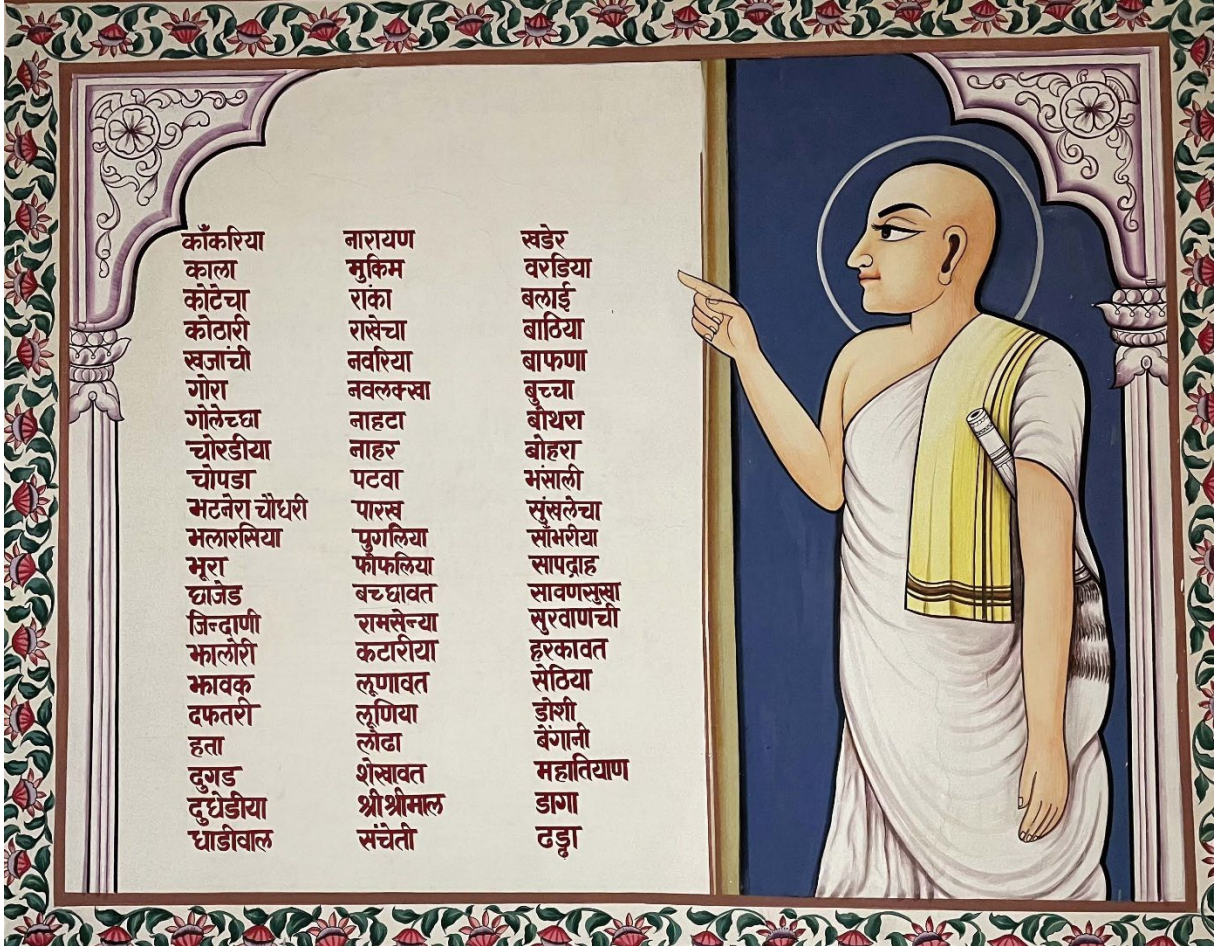 काँकरिया
काला
कोटेचा
कोठारी
खजांची
गोरा
गोलेच्छा
चोरडीया
चोपडा
भटनेरा चौधरी
भलारसिया
भूरा
छाजेड
जिन्दाणी
झालोरी
झाबक
दफतरी
हता
दुगड
दुधेडीया
धाडीवाल
नारायण
मुकिम
रांका
राखेचा
नवरिया
नवलक्खा
नाहटा
नाहर
पटवा
पारख
पुगलिया
फोफलिया
बच्छावत
रामसेन्या
कटारीया
लूणावत
लूणिया
लौढा
शेखावत
श्रीश्रीमाल
संचेती
खडेर
वरडिया
बलाई
बाठिया
बाफणा
बुच्चा
बोथरा
बोहरा
भंसाली
सुंखलेचा
साँभरीया
सापद्राह
सावणसुखा
सुरवाणची
हरकावत
सेठिया
डोशी
बेंगानी
महातियाण
डागा
ढड्ढा